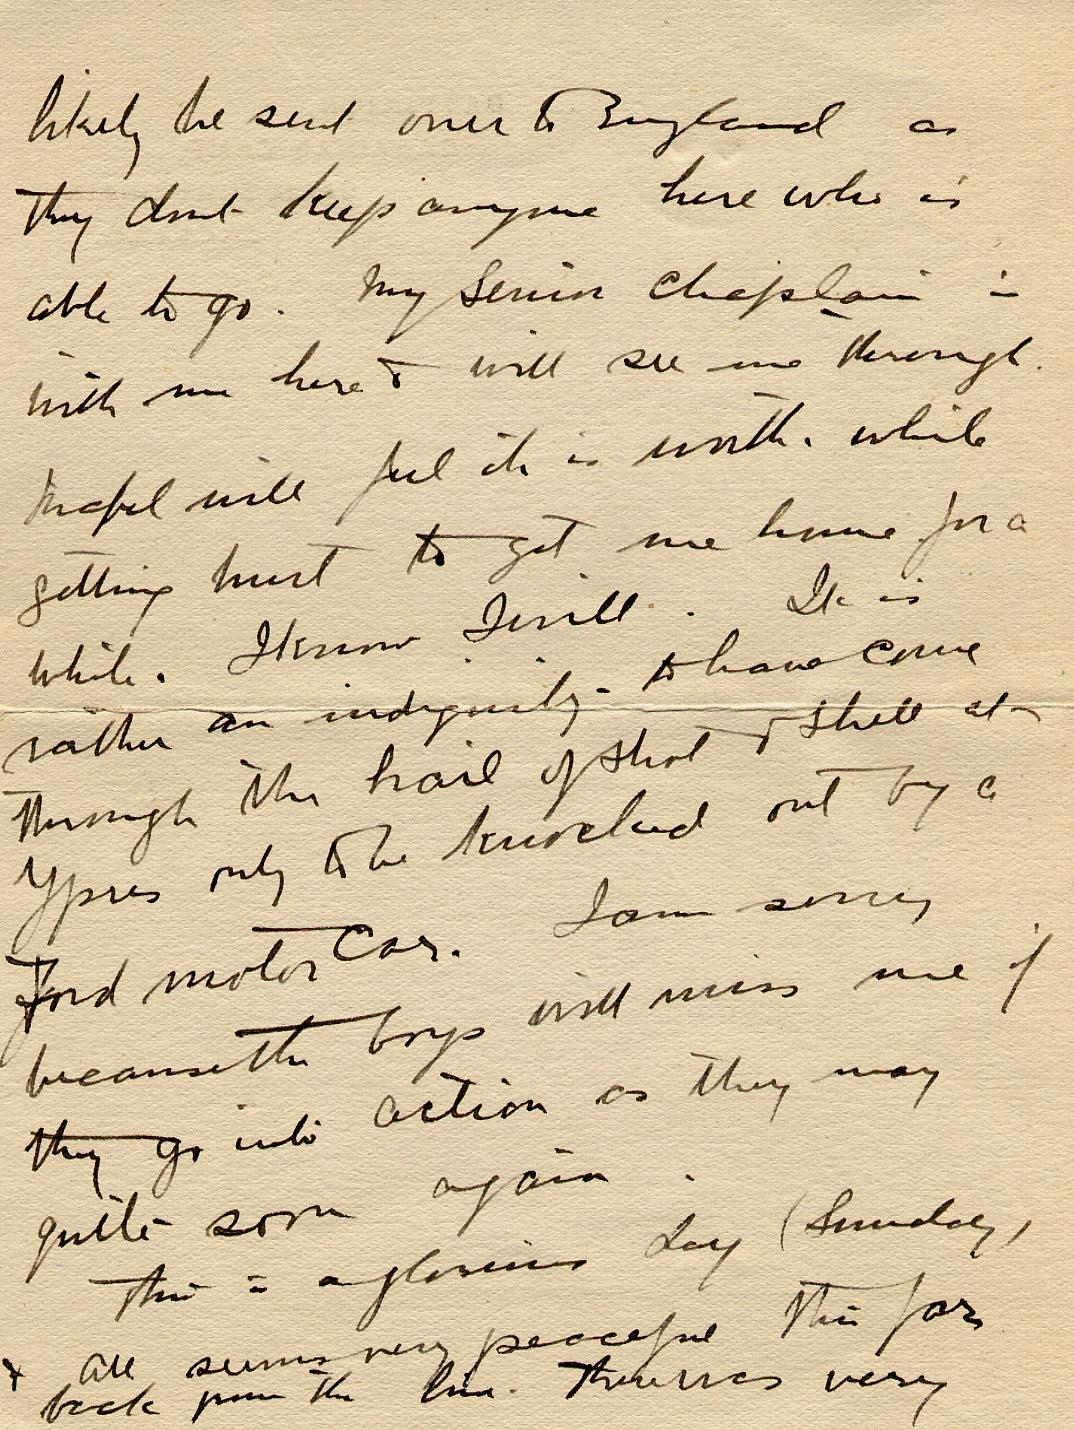 likely be sent over to England as
they dont keep anyone here who is
able to go. My Senior Chaplain is
with me here & will see me through.
will feel it is worth while
getting hurt to get me home for a
while. I know I will. It is
rather an indignity to have come
through the hail of shot & shell at
Ypres only to be knocked out by a
Ford motor car. I am sorry
because the boys will miss me if
they go into action as they may
quite soon again.
This is a glorious day (Sunday)
& all seems very peaceful this far
back from the line. There was very